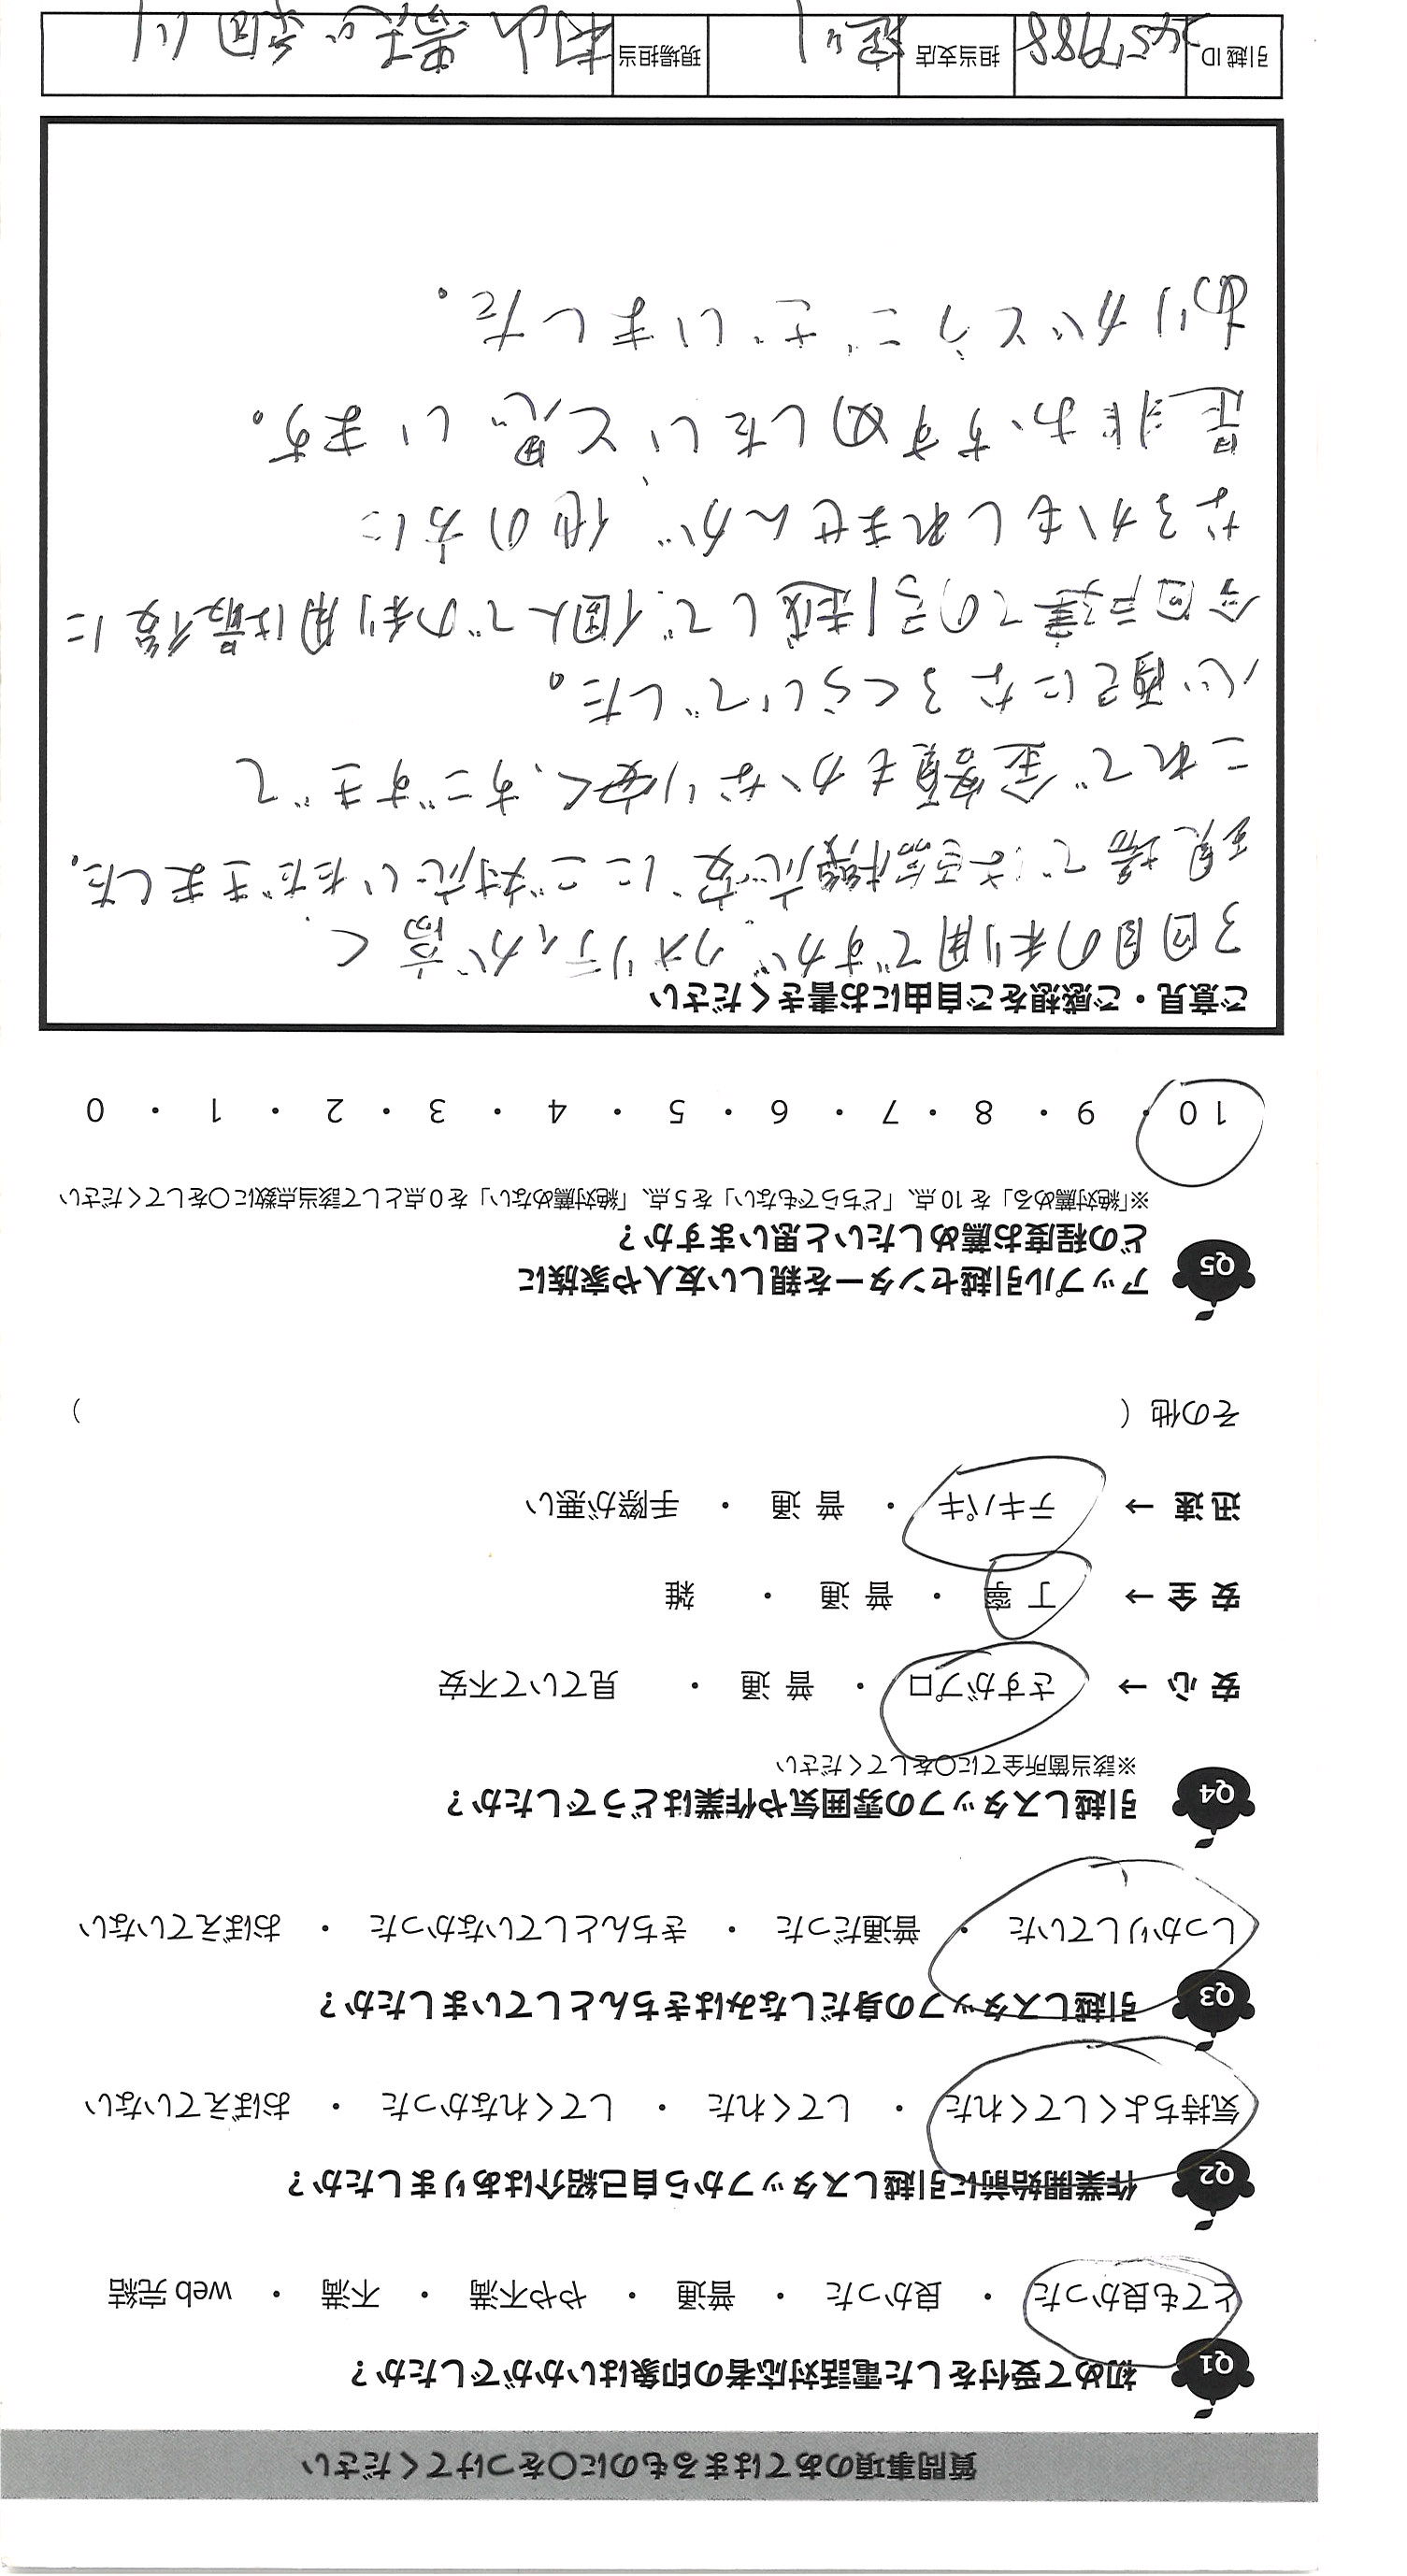 質問事項のあてはまるものに○をつけてください
Q1 初めて受付をした電話対応者の印象はいかがでしたか？
とても良かった ・ 良かった ・ 普通 ・ やや不満 ・ 不満 ・ web 完結
Q2 作業開始前に引越しスタッフから自己紹介はありましたか？
気持ちよくしてくれた ・ してくれた ・ してくれなかった ・ おぼえていない
Q3 引越しスタッフの身だしなみはきちんとしていましたか？
しっかりしていた ・ 普通だった ・ きちんとしていなかった ・ おぼえていない
Q4 引越しスタッフの雰囲気や作業はどうでしたか？
※該当箇所全てに○をしてください
安 心 → さすがプロ ・ 普 通 ・ 見ていて不安
安 全 → 丁 寧 ・ 普 通 ・ 雑
迅 速 → テキパキ ・ 普 通 ・ 手際が悪い
その他（ ）
Q5 アップル引越センターを親しい友人や家族に
どの程度お薦めしたいと思いますか？
※「絶対薦める」を 10 点、「どちらでもない」を 5 点、「絶対薦めない」を 0 点として該当点数に○をしてください
10 ・ 9 ・ 8 ・ 7 ・ 6 ・ 5 ・ 4 ・ 3 ・ 2 ・ 1 ・ 0
ご意見・ご感想をご自由にお書きください
3回目の利用ですが、クオリティが高く、
現場では臨機応変にご対応いただきました。
これで金額もかなり安く、すごすぎて
心配になるくらいでした。
今回戸建ての引越しで、個人での利用は最後に
なるかもしれませんが、他の方に
是非おすすめしたいと思います。
ありがとうございました。
引越 ID 担当支店 現場担当